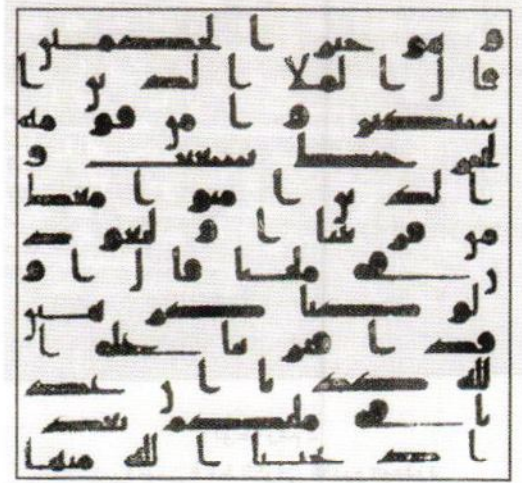 و هو خير ا لحكمين
قا ل ا لملا ا لذ ين ا
ستكبر و ا من قو مه
لنخرجنك يشعيب و
ا لذ ين ا منو ا معك
من قر يتنا ا و لتعو د
ن في ملتنا قا ل ا و
لو كنا كر هين
قد ا فتر ينا على ا
لله كذبا ا ن عد
نا في ملتكم بعد
ا ذ نجينا ا لله منها